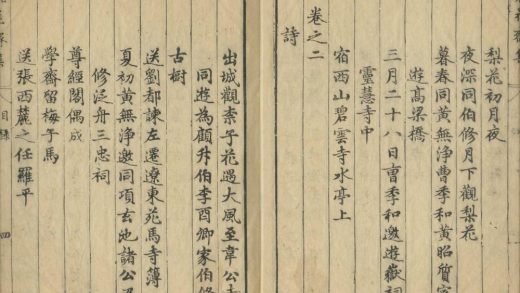 梨花初月夜
夜深同伯修月下觀梨花
暮春同黃無淨曹季和黃昭質家
遊高梁橋
三月二十八日曹季和邀遊歡
靈慧寺中
宿西山碧雲寺水亭上
卷之二
詩
出城觀柰子花遇大風至韋公
同遊為顧升伯李酉卿家伯修
古樹
送劉都諫左遷遼東苑馬寺簿
夏初黃無淨邀同項玄池諸公
修泛舟三忠祠
尊經閣偶成
學齋留梅子馬
送張西麓之任羅平
集 目錄 四